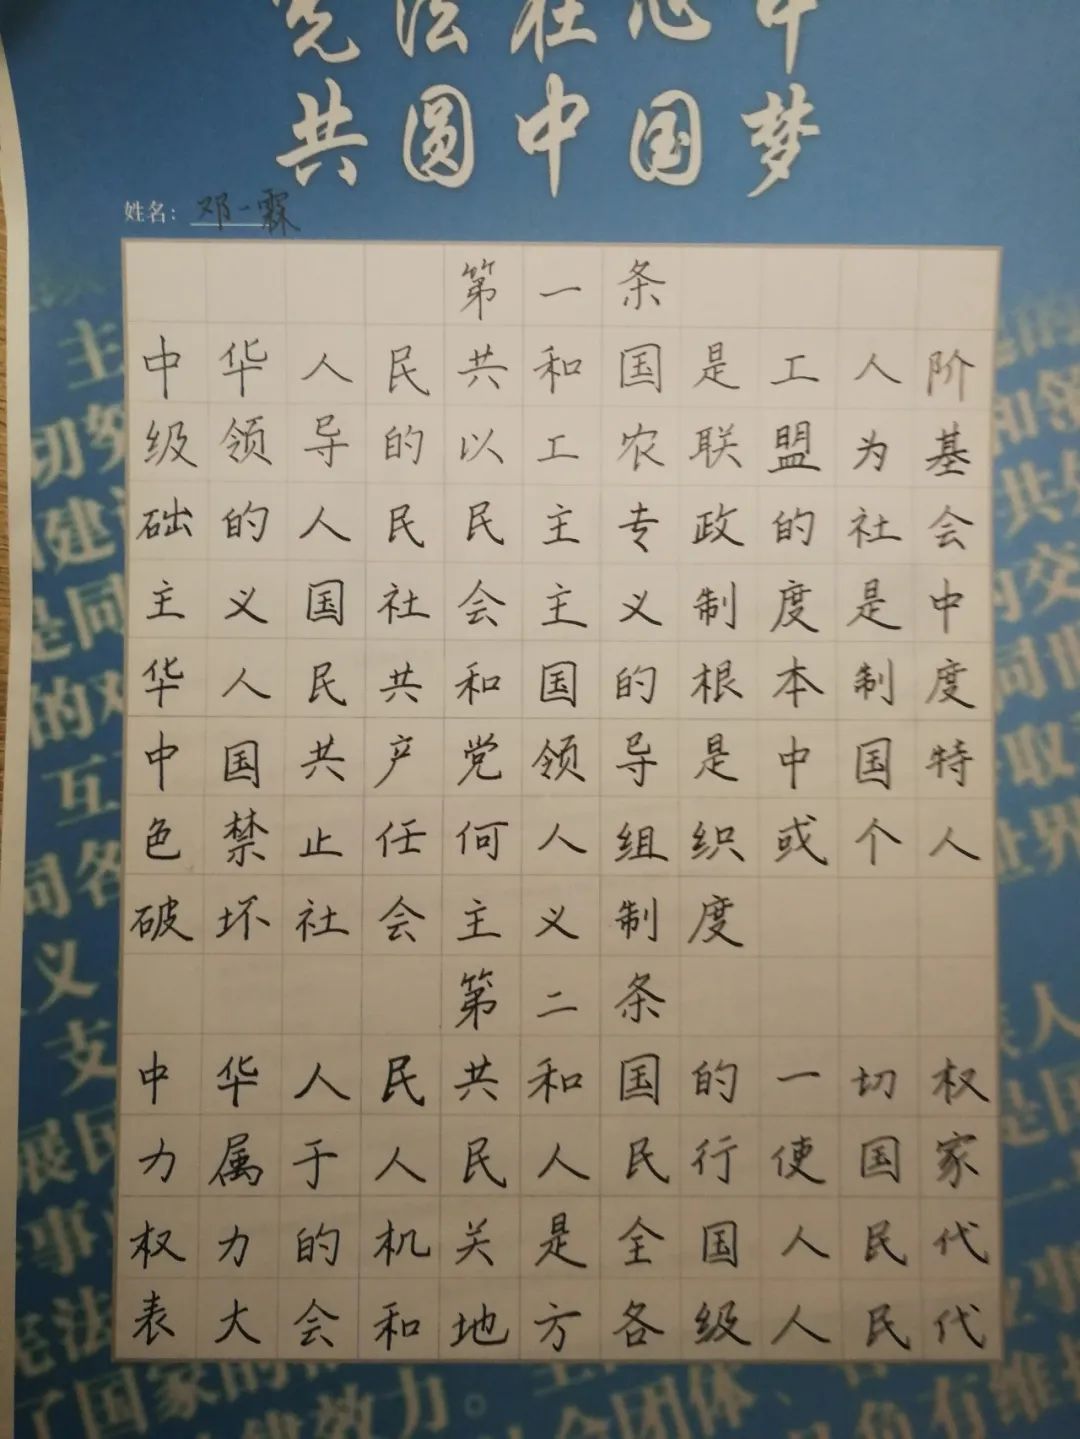 宪法在心中
共圆中国梦
姓名：邓一霖
第一条
中华人民共和国是工人阶
级领导的以工农联盟为基
础的人民民主专政的社会
主义国社会主义制度是中
华人民共和国的根本制度
中国共产党领导是中国特
色禁止任何人组织或个人
破坏社会主义制度
第二条
中华人民共和国的一切权
力属于人民人民行使国家
权力的机关是全国人民代
表大会和地方各级人民代